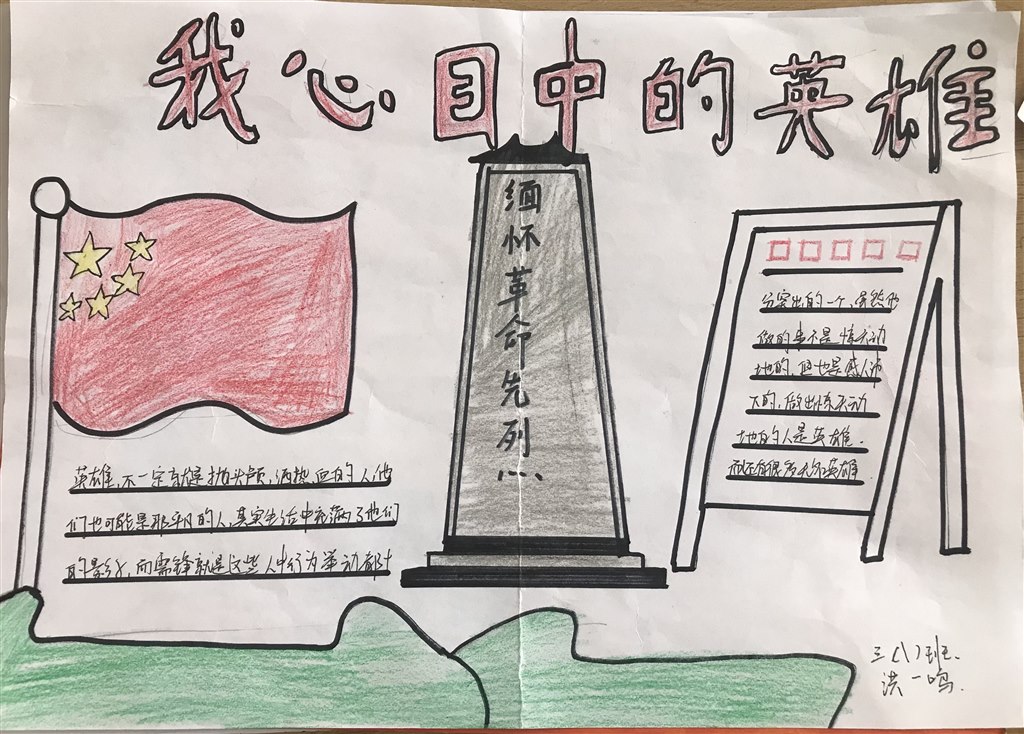 我心目中的英雄
缅怀革命先烈
英雄，不一定就是抛头颅，洒热血的人他
们也可能是那平凡的人，其实生活中充满了他们
的影子，而雷锋就是这些人中行为举动都十
分突出的一个，虽然他
做的事不是惊天动
地的，但也是感人泪
下的，做出惊天动
地的人是英雄．
而还有很多无名英雄．
三（八）班．
洪一鸣．